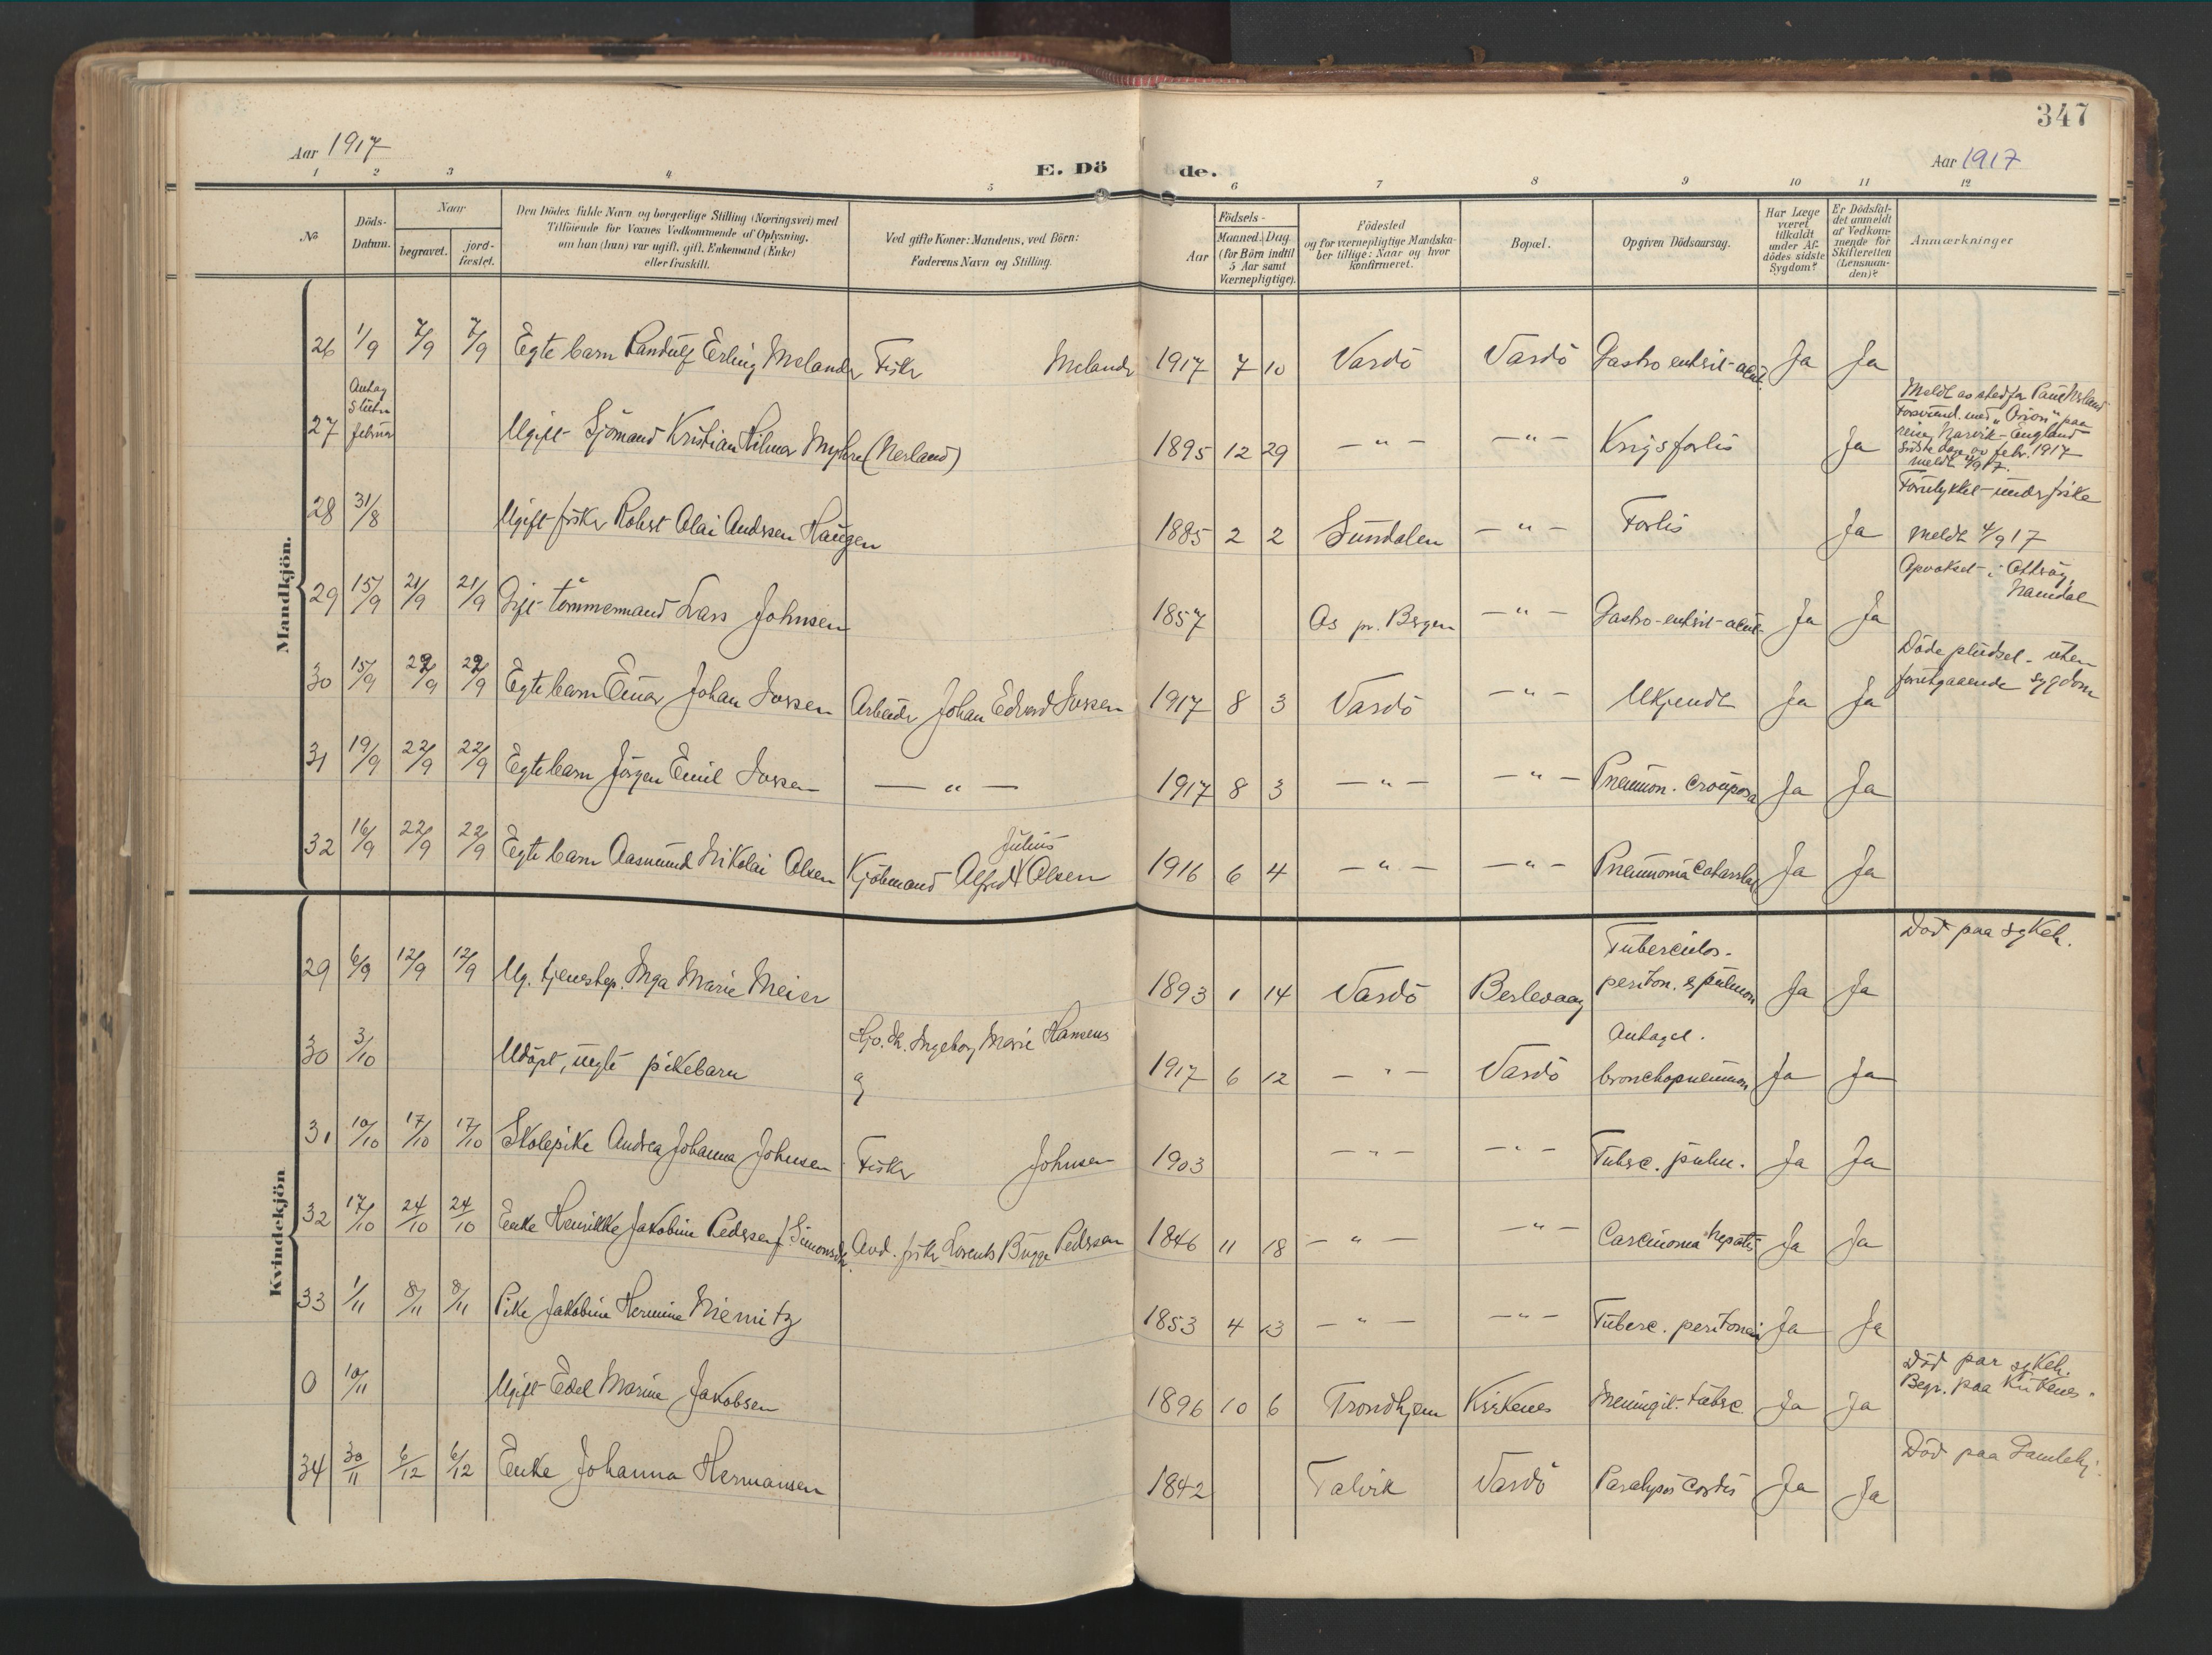 347
Aar 1917
E. Dö
de.
Aar 1917
1 2 3 4 5 6 7 8 9 10 11 12
No
Döds-
Datum.
Naar
begravet.
jord-
fæstet.
Den Dödes fulde Navn og borgerlige Stilling (Næringsvei) med
Tilföiende for Voxnes Vedkommende af Oplysning,
om han (hun) var ugift, gift, Enkemand (Enke)
eller fraskilt.
Ved gifte Koner: Mandens, ved Börn:
Faderens Navn og Stilling.
Födsels-
Aar
Maaned. Dag
(for Börn indtil
5 Aar samt
Værnepligtige).
Födested
og for værnepligtige Mandska-
ber tillige: Naar og hvor
konfirmeret.
Bopæl.
Opgiven Dödsaarsag.
Har Læge
været
tilkaldt
under Af-
dödes sidste
Sygdom?
Er Dödsfal-
det anmeldt
af Vedkom-
mende for
Skifteretten
(Lensman-
den)?
Anmærkninger
Mandkjön.
26 1/9 7/9 7/9 Egte barn Randulf Erling Melander Fisker Melander 1917 7 10 Vardö Vardö Gastro enterit acut. Ja Ja
27 Antag Slutn februar Ugift Sjömand Kristian Hilmar Myhre (Nerland) 1895 12 29 — " — — " — Krigsforlis Ja
Meldt av stedfar Paul Nerland
Forsvund. med "Orion" paa
reise Narvik - England
sidste dage av febr. 1917
meldt 4/9 17.
28 31/8 Ugift fisker Robert Olai Andersen Haugen 1885 2 2 Sundalen — " — Forlis Ja
Forulykket under fiske
meldt 4/9 17
29 15/9 21/9 21/9 Gift tömmermand Lars Johnsen 1857 Os pr. Bergen — " — Gastro-enterit-acut. Ja Ja
Opvokset i
Namdal
30 15/9 22/9 22/9 Egte barn Einar Johan Iversen Arbeider Johan Edvard Iversen 1917 8 3 Vardö — " — Ukjendt Ja Ja
Döde pludsel. uten
forutgaaende sygdom
31 19/9 22/9 22/9 Egte barn Jörgen Emil Iversen — " — 1917 8 3 — " — — " — Pneumon. crouposa Ja Ja
32 16/9 22/9 22/9 Egte barn Aasmund Nikolai Olsen Kjöbmand Alfred Julius Olsen 1916 6 4 — " — — " — Pneumonia catarrhal Ja Ja
Kvindekjön
29 6/9 12/9 12/9 Ug. tjenestep. Inga Marie Meier 1893 1 14 Vardö Berlevaag Tuberculos.
periton. & pulmon Ja Ja
Död paa sykeh.
30 3/10 Udöpt, uegte pikebarn Hjo. Dt. Ingeborg Marie Hansens
og 1917 6 12 — " — Vardö Antagel.
bronchopneumon Ja Ja
31 10/10 17/10 17/10 Skolepike Andrea Johanna Johnsen Fisker Johnsen 1903 — " — — " — Tuberc. pulm. Ja Ja
32 17/10 24/10 24/10 Enke Henrikke Jakobine Pedersen f. Simonsen Avd. fisker Lorents Bugge Pedersen 1846 11 18 — " — — " — Carcinoma hepatis Ja Ja
33 1/11 8/11 8/11 Pike Jakobine Hermine Niemitz 1853 4 13 — " — — " — Tuberc. peritonei Ja Ja
0 10/11 Ugift Edel Marine Jakobsen 1896 10 6 Trondhjem Kirkenes Meningit. tuberc. Ja Ja
Död paa sykeh.
Begr. paa Kirkenes.
34 30/11 6/12 6/12 Enke Johanna Hermansen 1842 Talvik Vardö Paralysis cordis Ja Ja
Död paa Gamlehj.